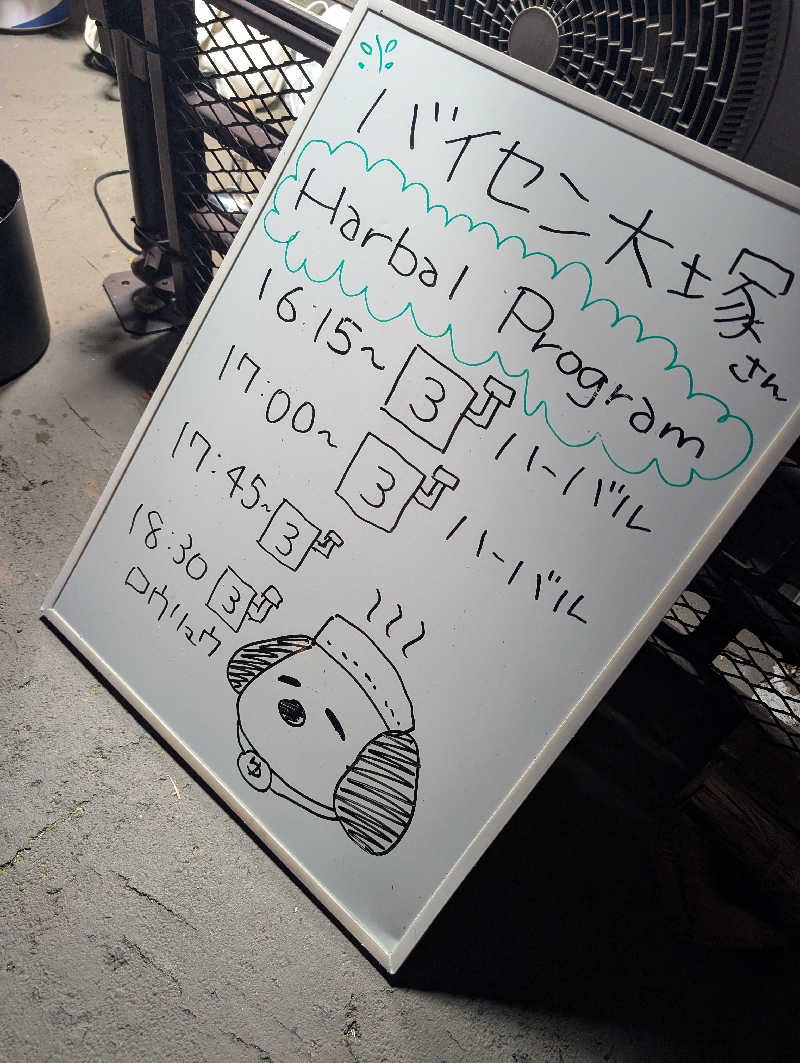 バイセン大塚さん
Harbal Program
16:15~ 3 ハーバル
17:00~ 3 ハーバル
17:45~ 3
18:30 3
ロウリュウ
サ